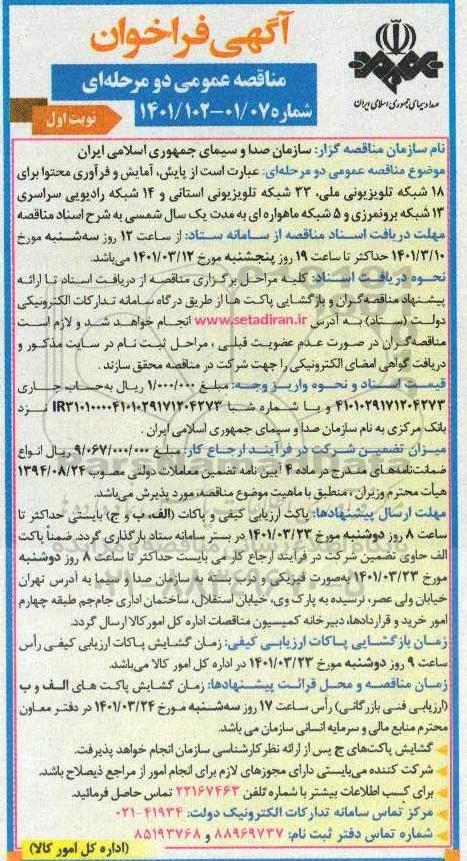 آگهی فراخوان
مناقصه عمومی دو مرحله‌ای
شماره ۰۱/۰۷-۱۴۰۱/۱۰۲
نوبت اول
صدا و سیمای جمهوری اسلامی ایران
نام سازمان مناقصه گزار: سازمان صدا و سیمای جمهوری اسلامی ایران
موضوع مناقصه عمومی دو مرحله‌ای: عبارت است از پایش، آمایش و فرآوری محتوا برای
۱۸ شبکه تلویزیونی ملی، ۳۳ شبکه تلویزیونی استانی و ۱۴ شبکه رادیویی سراسری
۱۳ شبکه برونمرزی و ۵ شبکه ماهواره ای به مدت یک سال شمسی به شرح اسناد مناقصه
مهلت دریافت اسناد مناقصه از سامانه ستاد: از ساعت ۱۲ روز سه‌شنبه مورخ
۱۴۰۱/۳/۱۰ حداکثر تا ساعت ۱۹ روز پنجشنبه مورخ ۱۴۰۱/۰۳/۱۲ می‌باشد.
نحوه دریافت اسناد: کلیه مراحل برگزاری مناقصه از دریافت اسناد تا ارائه
پیشنهاد مناقصه‌گران و بازگشایی پاکت ها از طریق درگاه سامانه تدارکات الکترونیکی
دولت (ستاد) به آدرس www.setadiran.ir انجام خواهد شد و لازم است
مناقصه‌گران در صورت عدم عضویت قبلی، مراحل ثبت نام در سایت مذکور و
دریافت گواهی امضای الکترونیکی را جهت شرکت در مناقصه محقق سازند.
قیمت اسناد و نحوه واریز وجه: مبلغ ۱/۰۰۰/۰۰۰ ریال به‌حساب جاری
۴۱۰۱۰۲۹۱۷۱۲۰۴۲۷۳ و با شماره شبا IR۳۱۰۱۰۰۰۰۴۱۰۱۰۲۹۱۷۱۲۰۴۲۷۳ نزد
بانک مرکزی به نام سازمان صدا و سیمای جمهوری اسلامی ایران.
میزان تضمین شرکت در فرآیند ارجاع کار: مبلغ ۹/۰۶۷/۰۰۰/۰۰۰ ریال انواع
ضمانت‌نامه‌های مندرج در ماده ۴ آیین نامه تضمین معاملات دولتی مصوب ۱۳۹۴/۰۸/۲۴
هیأت محترم وزیران، منطبق با ماهیت موضوع مناقصه، مورد پذیرش می‌باشد.
مهلت ارسال پیشنهادها: پاکت ارزیابی کیفی و پاکات (الف، ب و ج) بایستی حداکثر تا
ساعت ۸ روز دوشنبه مورخ ۱۴۰۱/۰۳/۲۳ در بستر سامانه ستاد بارگذاری گردد. ضمناً پاکت
الف حاوی تضمین شرکت در فرآیند ارجاع کار می بایست حداکثر تا ساعت ۸ روز دوشنبه
مورخ ۱۴۰۱/۰۳/۲۳ به‌صورت فیزیکی و درب بسته به سازمان صدا و سیما به آدرس تهران
خیابان ولی عصر، نرسیده به پارک وی، خیابان استقلال، ساختمان اداری جام‌جم طبقه چهارم
امور خرید و قراردادها، دبیرخانه کمیسیون مناقصات اداره کل امور کالا ارسال گردد.
زمان بازگشایی پاکات ارزیابی کیفی: زمان گشایش پاکات ارزیابی کیفی رأس
ساعت ۹ روز دوشنبه مورخ ۱۴۰۱/۰۳/۲۳ در اداره کل امور کالا می‌باشد.
زمان مناقصه و محل قرائت پیشنهادها: زمان گشایش پاکت های الف و ب
(ارزیابی فنی بازرگانی) رأس ساعت ۱۷ روز سه‌شنبه مورخ ۱۴۰۱/۰۳/۲۴ در دفتر معاون
محترم منابع مالی و سرمایه انسانی سازمان می باشد.
گشایش پاکت‌های ج پس از ارائه نظر کارشناسی سازمان انجام خواهد پذیرفت.
شرکت کننده می‌بایستی دارای مجوزهای لازم برای انجام امور از مراجع ذیصلاح باشد.
برای کسب اطلاعات بیشتر با شماره تلفن ۲۲۱۶۷۴۶۳ تماس حاصل فرمائید.
مرکز تماس سامانه تدارکات الکترونیک دولت: ۴۱۹۳۴-۰۲۱
شماره تماس دفتر ثبت نام: ۸۸۹۶۹۷۳۷ و ۸۵۱۹۳۷۶۸
(اداره کل امور کالا)